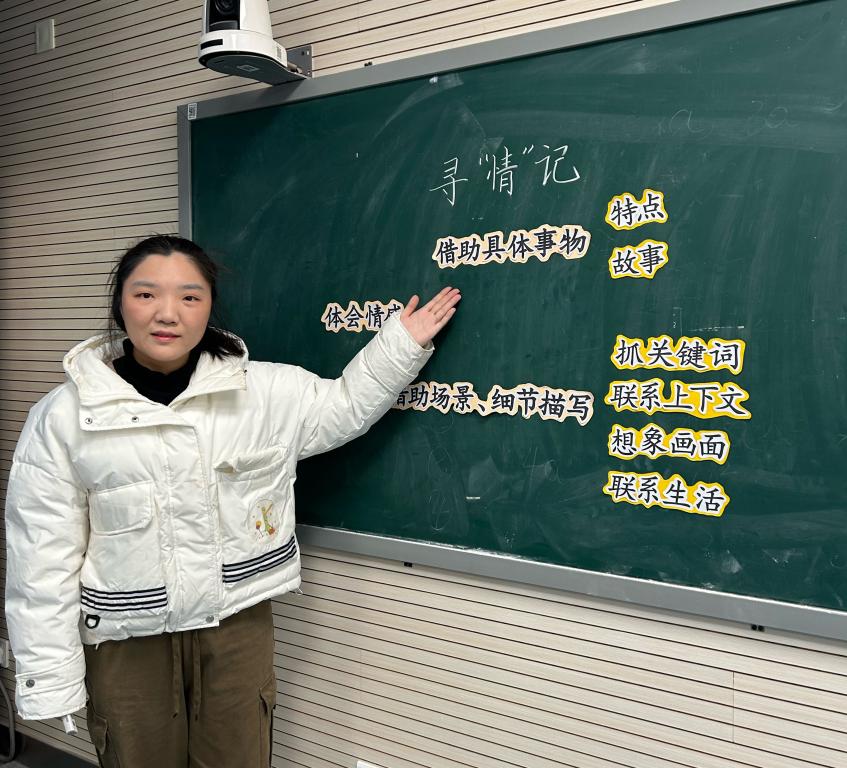 寻"情"记
借助具体事物
特点
故事
体会情感
借助场景、细节描写
抓关键词
联系上下文
想象画面
联系生活